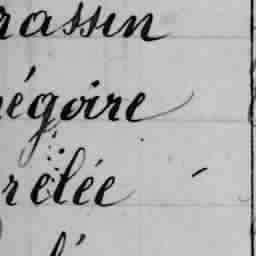 rassin
égoire
rélée